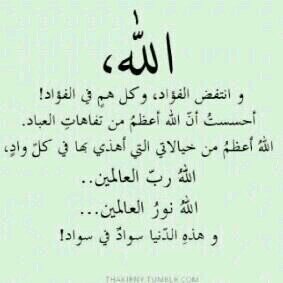 الله،
و انتفض الفؤاد، وكل همٍ في الفؤاد!
أحسستُ أنّ الله أعظمُ من تفاهاتِ العباد.
اللهُ أعظمُ من خيالاتي التي أهذي بها في كلّ وادٍ،
اللهُ ربّ العالمين..
اللهُ نورُ العالمين...
و هذهِ الدّنيا سوادٌ في سواد!
THAKIRNY.TUMBLR.COM